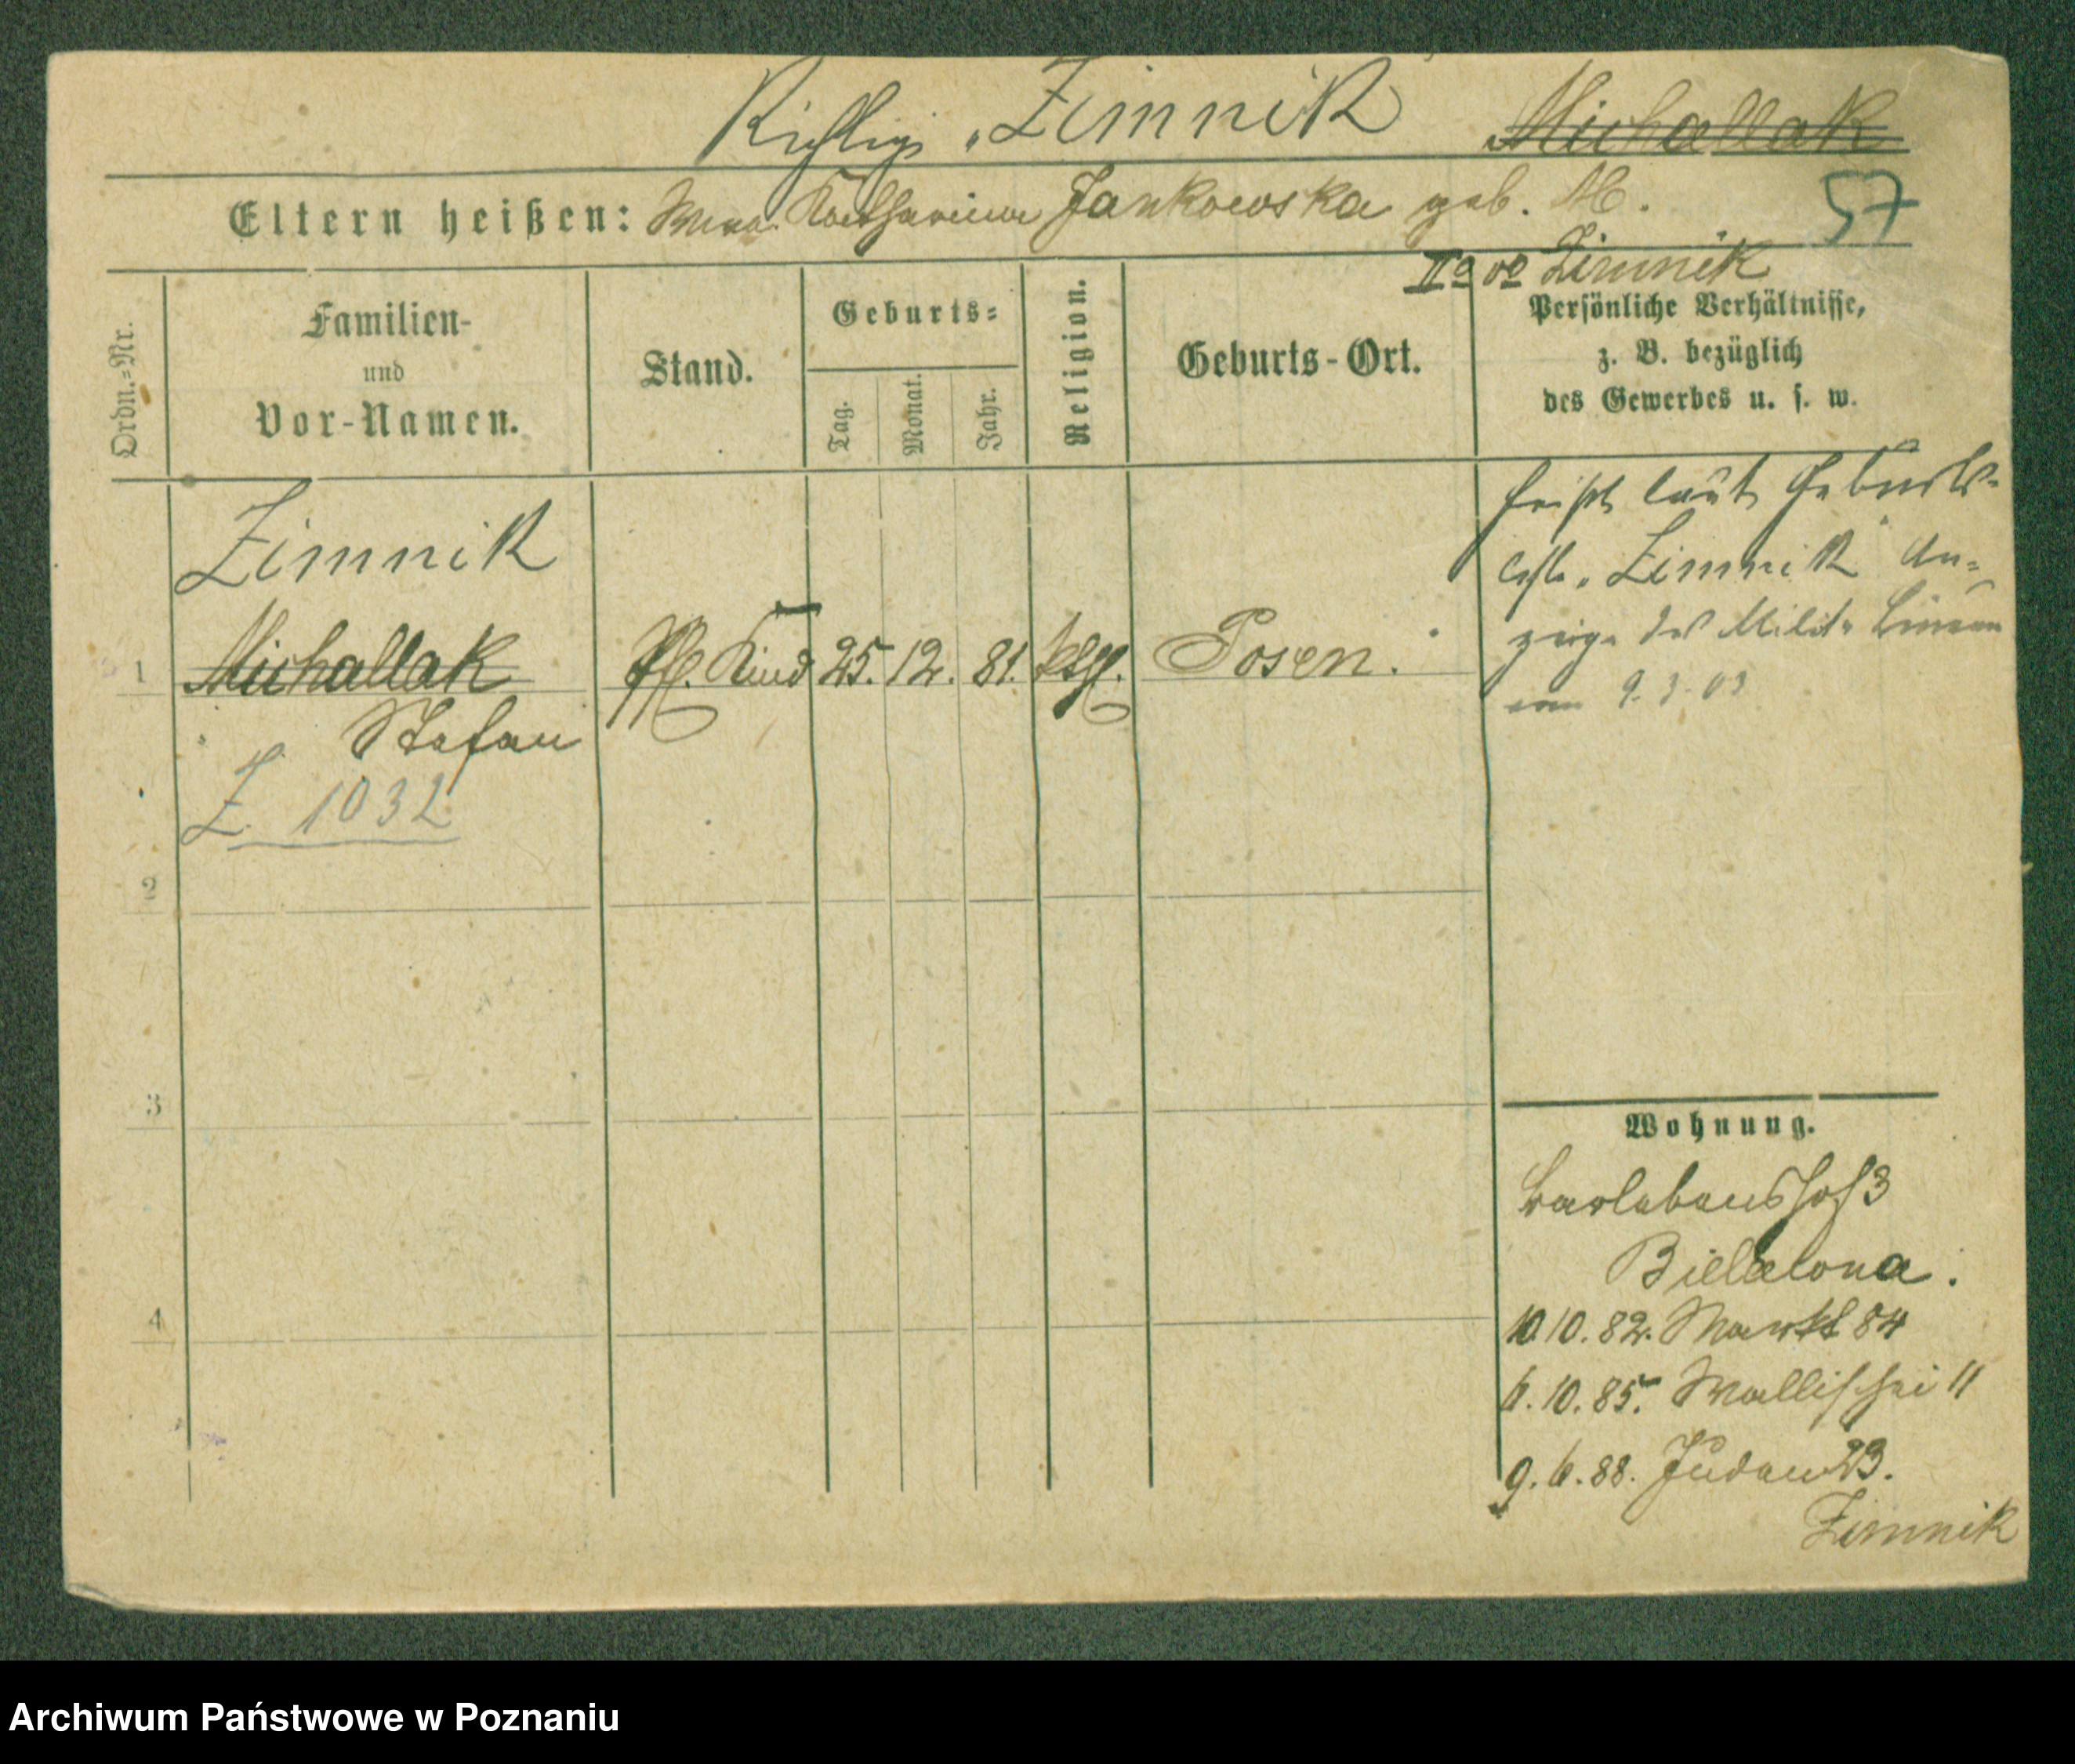 Richtig „Zimnik Michallak
Eltern heißen: Wwe. Katharina Jankowska geb. M.
57
IIo vo Zimnik
Ordn.=Nr.
Familien-
und
Vor-Namen.
Stand.
Geburts=
Tag.
Monat.
Jahr.
Religion.
Geburts-Ort.
Persönliche Verhältnisse,
z. B. bezüglich
des Gewerbes u. s. w.
Zimnik
1 Michallak Pfl. Kind 25. 12. 81. kthl. Posen.
Stefan
Z. 1032
heißt laut Geburts-
liste „Zimnik" An=
zeige des Milit. Büreau
vom 9.3.03
2
3
4
Wohnung.
Barlebenshof 3
Bielalona.
10.10.82. Markt 84
6.10.85. Wallischei 11
9.6.88. Juden 23.
Zimnik
Archiwum Państwowe w Poznaniu